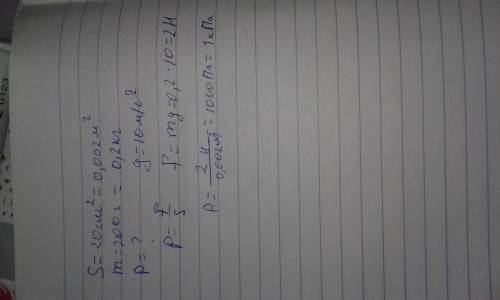 S=20см²=0,002м²
m=200г=0,2кг
p=? g=10м/с²
p=F/S F=mg=0,2·10=2Н
p=2Н/0,002м²=1000Па=1кПа
0123